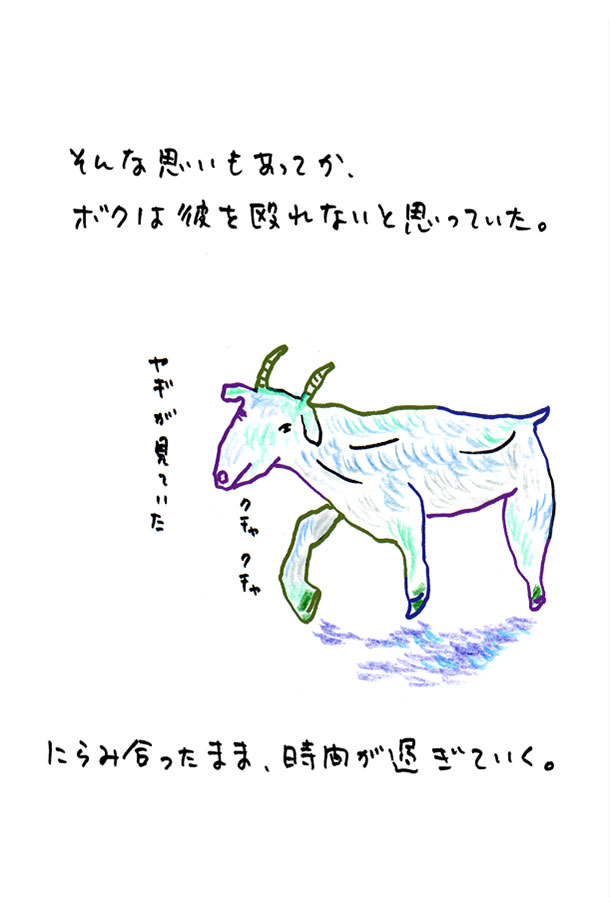 そんな思いもあってか、
ボクは彼を殴れないと思っていた。
ヤギが見ていた
クチャクチャ
にらみ合ったまま、時間が過ぎていく。